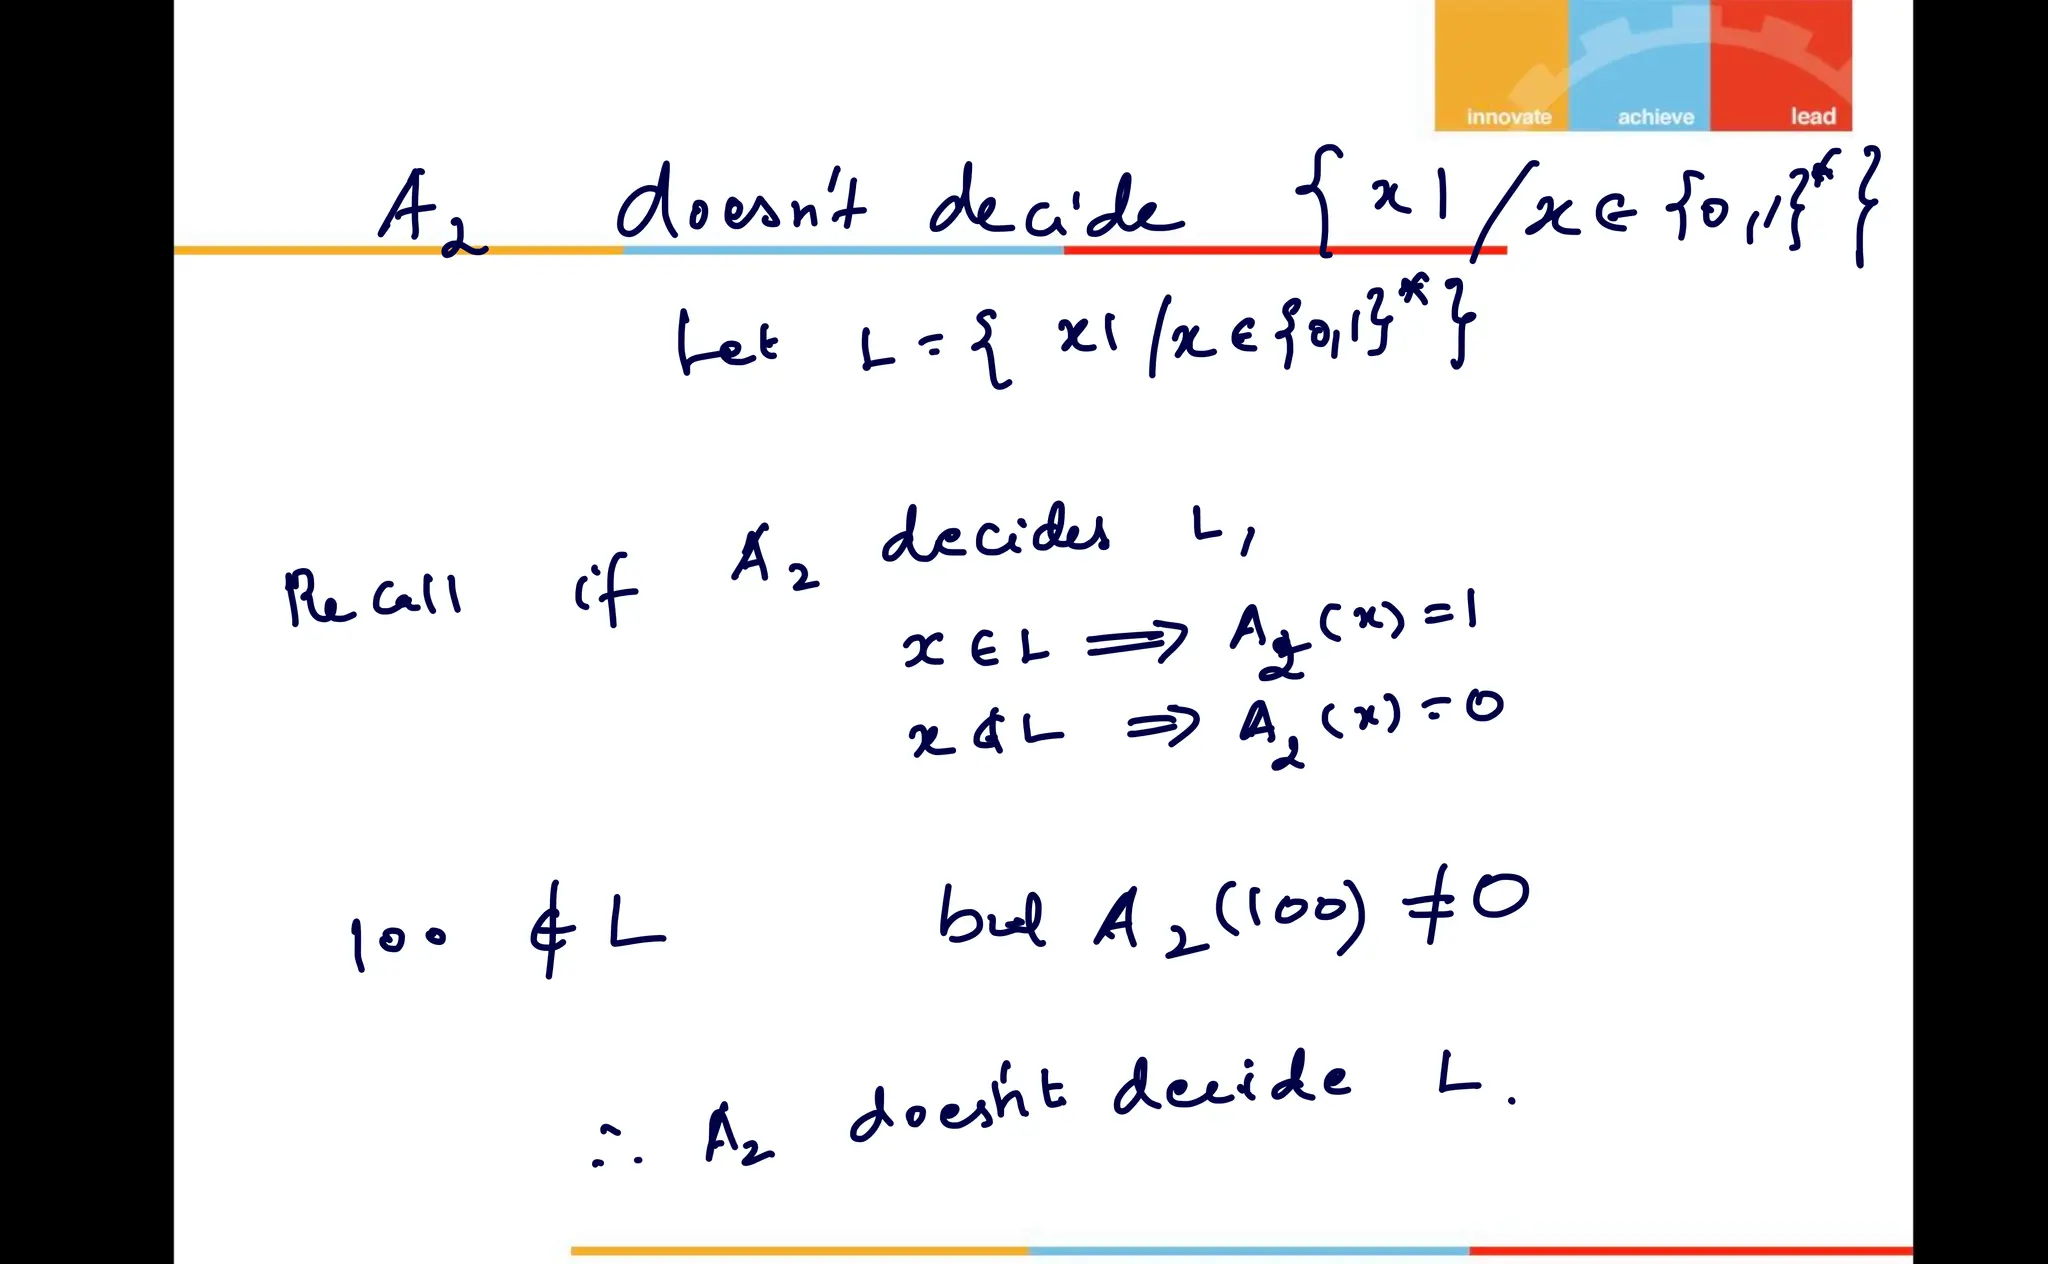 innovate achieve lead
A₂ doesn't decide { x1 / x ∈ {0,1}* }
Let L = { x1 / x ∈ {0,1}* }
Recall if A₂ decides L,
x ∈ L ⟹ A₂(x) = 1
x ∉ L ⟹ A₂(x) = 0
100 ∉ L but A₂(100) ≠ 0
∴ A₂ doesn't decide L.